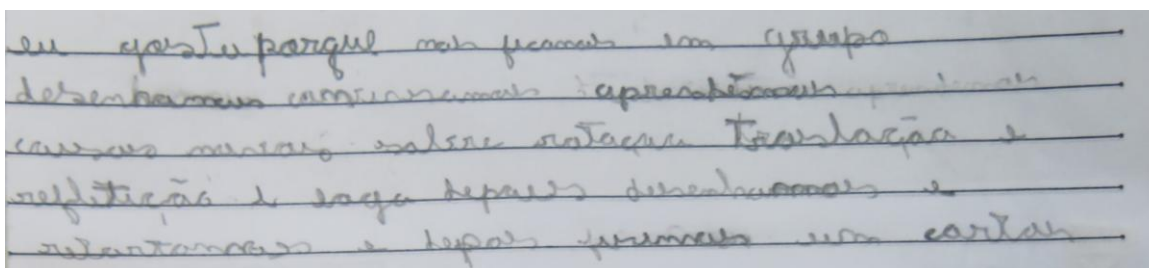 eu gostu porque nois ficamos em grupo
desenhamos aprendemos
causas novas sobre rotaçau translação e
reflitição e logo depois desenhamos e
recortamos e depos fizemos um cartas